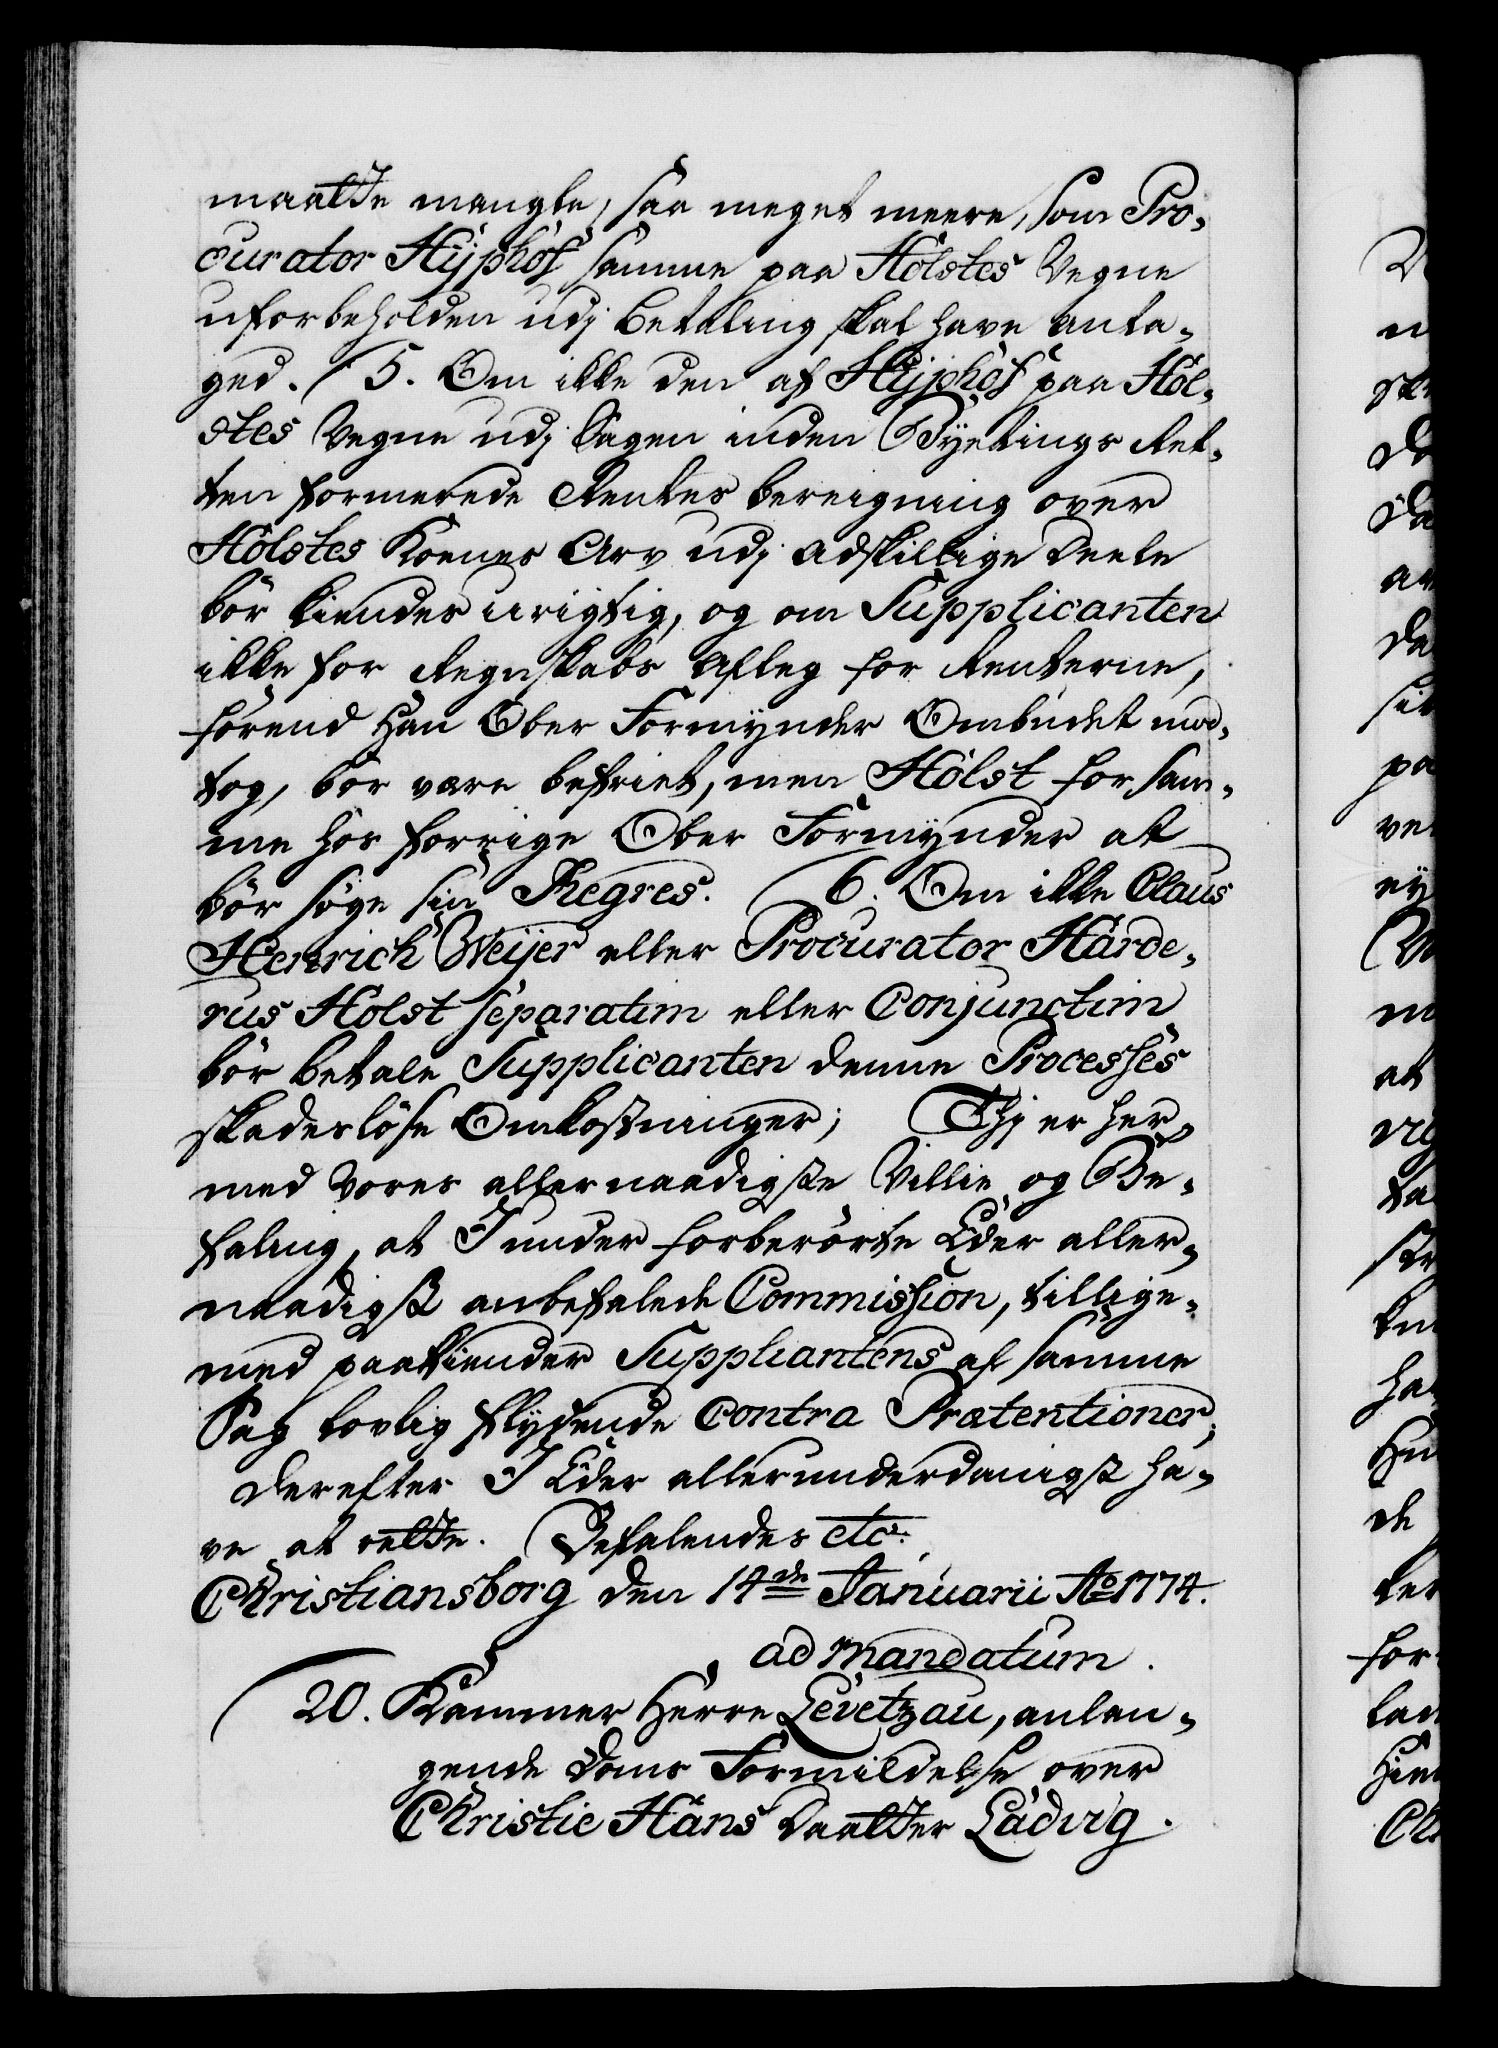 maatte mangle, saa meget meere, som Pro-
curator Hÿphof samme paa Holstes Vegne
uforbeholden udj betaling skal have anta-
ged. 5. Om ikke den af Hÿphof paa Hol-
stes Vegne udj Sagen inden Byetings Ret-
ten formerede Rentes beregning over
Holstes Kones Arv udj adskillige Deele
bør kiendes urigtig, og om Supplicanten
ikke for Regnskabs Aflæg for Renterne,
førend Han Ober Formynder Ombudet mod-
tog, bør være befriet, men Holst for sam-
me hos forrige Ober Formynder at
bør søge sin Regres. 6. Om ikke Claus
Henrich Weijer eller Procurator Harde-
rus Holst separatim eller Conjunctim
bør betale Supplicanten denne Processes
skadesløse Omkostninger; Thj er her-
med Vores allernaadigste Villie og Be-
faling, at I under forberørte Eder aller-
naadigst anbefalede Commission, tillige-
med paakiender Supplicantens af samme
Sag lovlig flydende Contra Prætentioner;
derefter I Eder allerunderdanigst ha-
ve at rette. Befalendes etc.
Christiansborg den 14de Januarii Ao 1774.
ad mandatum.
20. Kammer Herre Levetzau, anlan-
gende Doms Formildelse over
Christie Hans Daatter Ladvig.